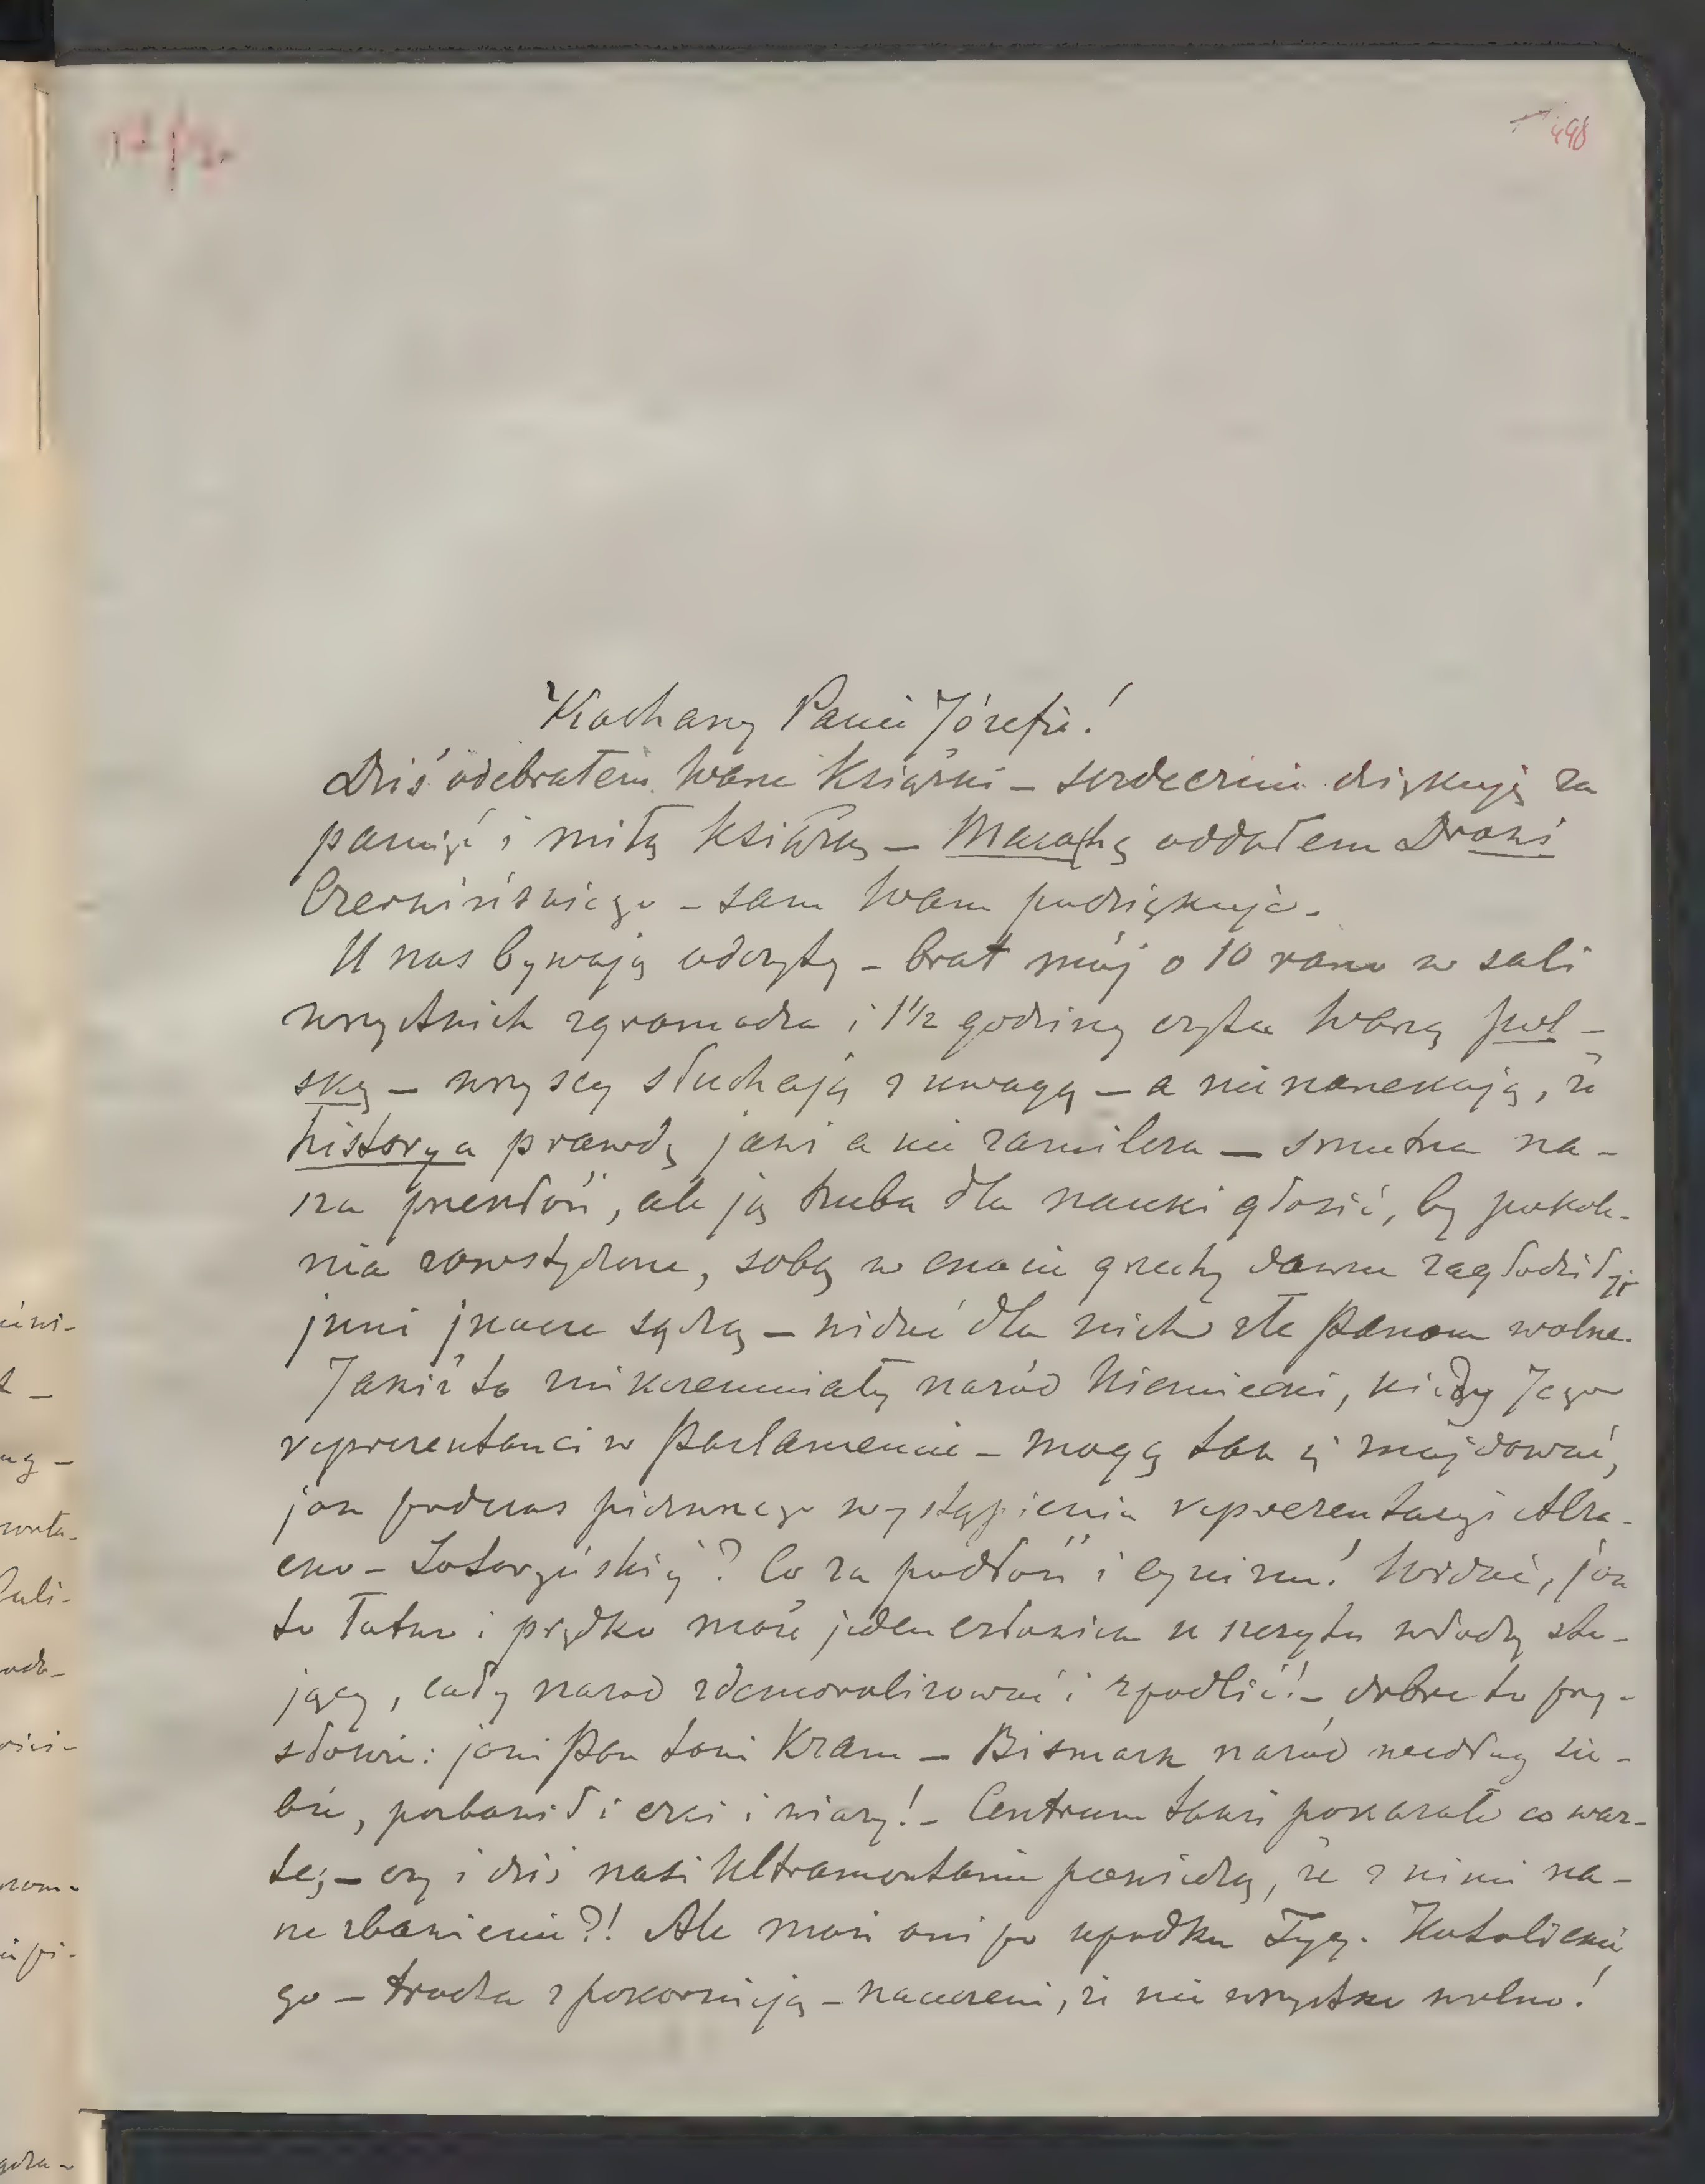 498
Kochany Panie Józefie!
Dziś odebrałem Wasze książki – serdecznie dziękuję za
pamięć i miłą książkę – oddałem
– sam Wam podziękuje.
U nas bywają odczyty – brat mój o 10 rano w sali
wszystkich zgromadza i 1 1/2 godziny czyta Waszą pol-
skę – wszyscy słuchają z uwagą – a nie narzekają, że
historya prawdę jawi a nie zamilcza – smutna na-
sza przeszłość, ale ją trzeba dla nauki głosić, by pokole-
nia zawstydzone, sobą w cnocie grzechy dawne zagłodziły;
inni inacze sądzą – widać dla nich złe Panom wolne.
Jakiż to nikczemniały naród Niemiecki, kiedy Jego
reprezentanci w Parlamencie – mogą tak się znajdować,
jak podczas pierwszego wystąpienia reprezentacyi Alza-
cko-Lotaryńskiéj? Co za podłość i cynizm! Widać, jak
to łatwo i prędko może jeden człowiek u szczytu władzy sto-
jący, cały naród zdemoralizować i spodlić! – dobre to przy-
słowie: jaki Pan taki Kram – Bismark naród według sie-
bie, pozbawił i czci i wiary! – Centrum także pokazało co war-
te; – czy i dziś nasi Ultramontanie powiedzą, że z nimi na-
sze zbawienie?! Ale może oni po upadku Tyg. Katolickie
go – trocha spokornieją – nauczeni, że nie wszystko wolno!